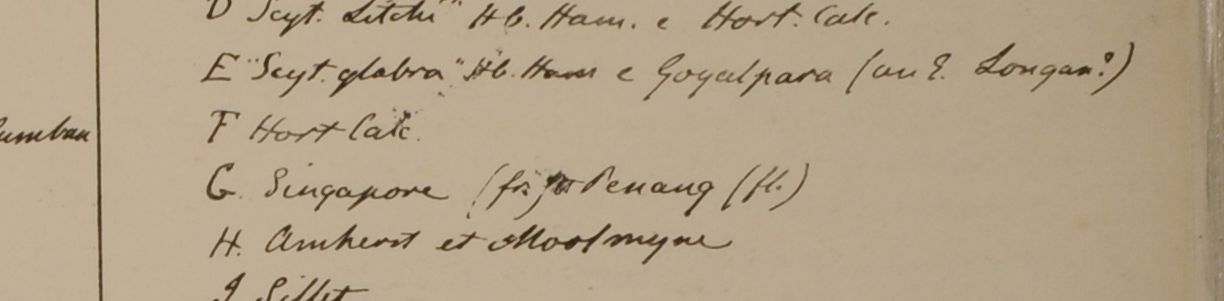 D Scyt. Litchi" Hb. Ham. e Hort. Calc.
E "Scyt. glabra" Hb. Ham e Goyalpara (an E. Longan?)
umban
F Hort Calc.
G. Singapore (fr.) Penang (fl.)
H. Amherst et Moolmyne
J Sillet